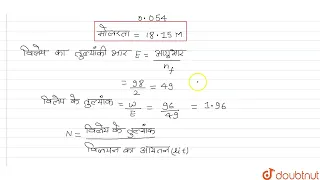 0.054
मोलरता = 18.15 M
विलेय का तुल्यांकी भार E = अणुभार / nf
= 98/2 = 49
विलेय के तुल्यांक = W/E = 96/49 = 1.96
N = विलेय के तुल्यांक / विलयन का आयतन (lit)
doubtnut